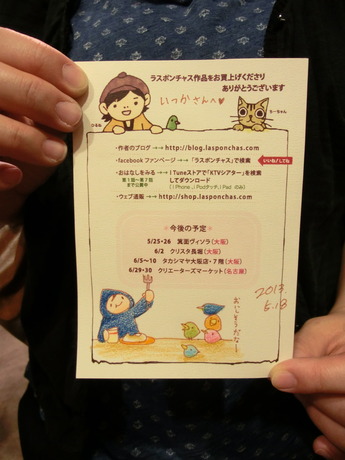 ラスポンチャス作品をお買上げくださり
ありがとうございます
いつかさんへ♥
・作者のブログ →→ http://blog.lasponchas.com
・facebook ファンページ →→「ラスポンチャス」で検索 いいね!してね
・おはなしをみる →→ iTuneストアで「KTVシアター」を検索
第1話〜第7話 してダウンロード
まで公開中 (iPhone、iPodタッチ、iPad のみ)
・ウェブ通販 →→ http://shop.lasponchas.com
※ 今後の予定 ※
5/25・26 箕面ヴィソラ(大阪)
6/2 クリスタ長堀(大阪)
6/5〜10 タカシマヤ大阪店・7階(大阪)
6/29・30 クリエーターズマーケット(名古屋)
おいしそうだなー
2013
5.18